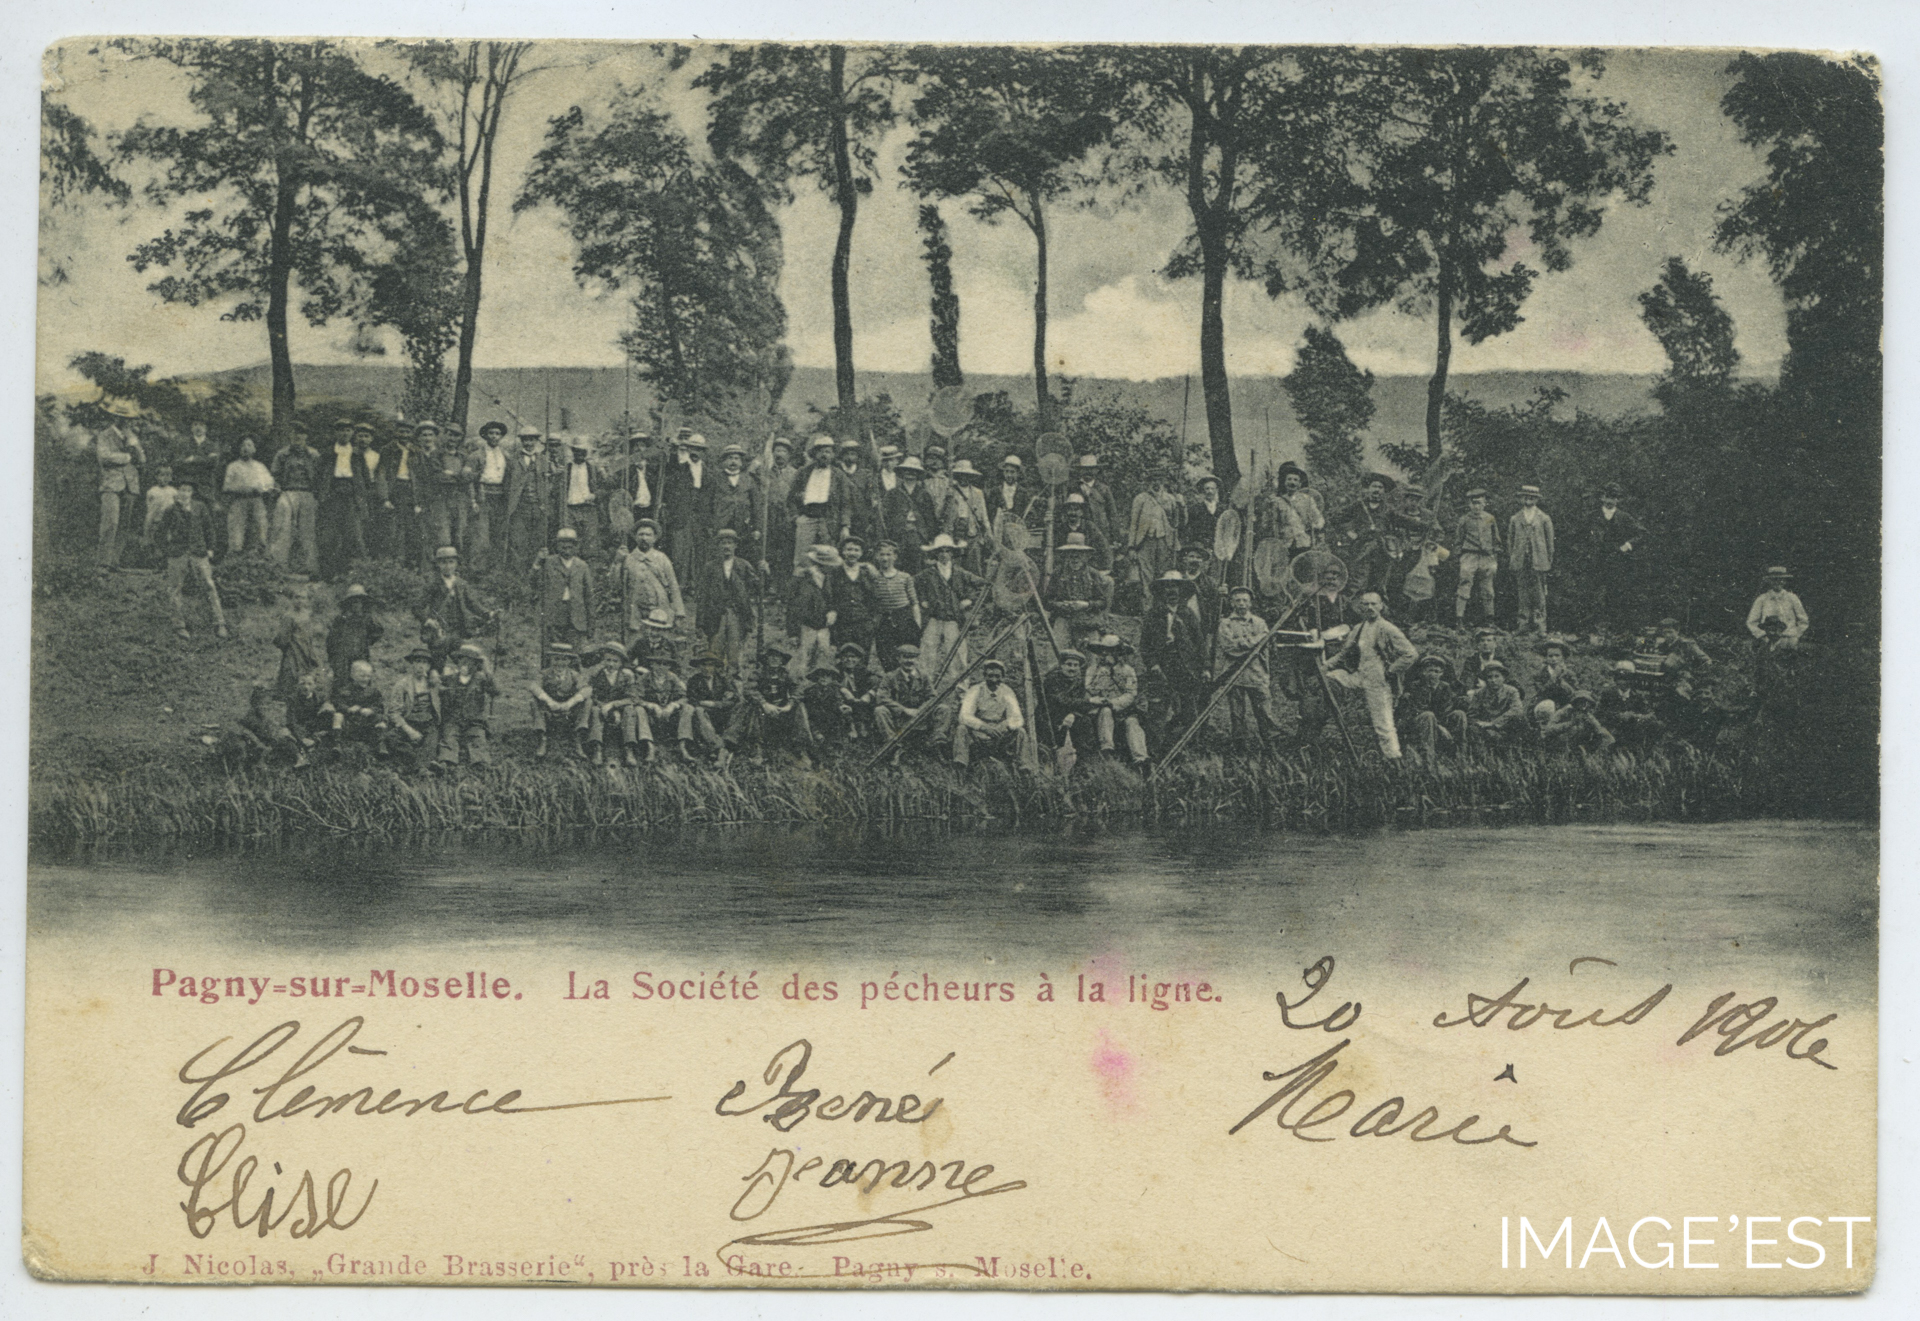 Pagny=sur=Moselle. La Société des pécheurs à la ligne.
20 Août 1906
Clémence René Marie
Elise Jeanne
J. Nicolas, „Grande Brasserie“, près la Gare. Pagny s. Moselle.
IMAGE'EST